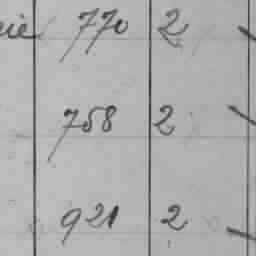 770 2
758 2
921 2